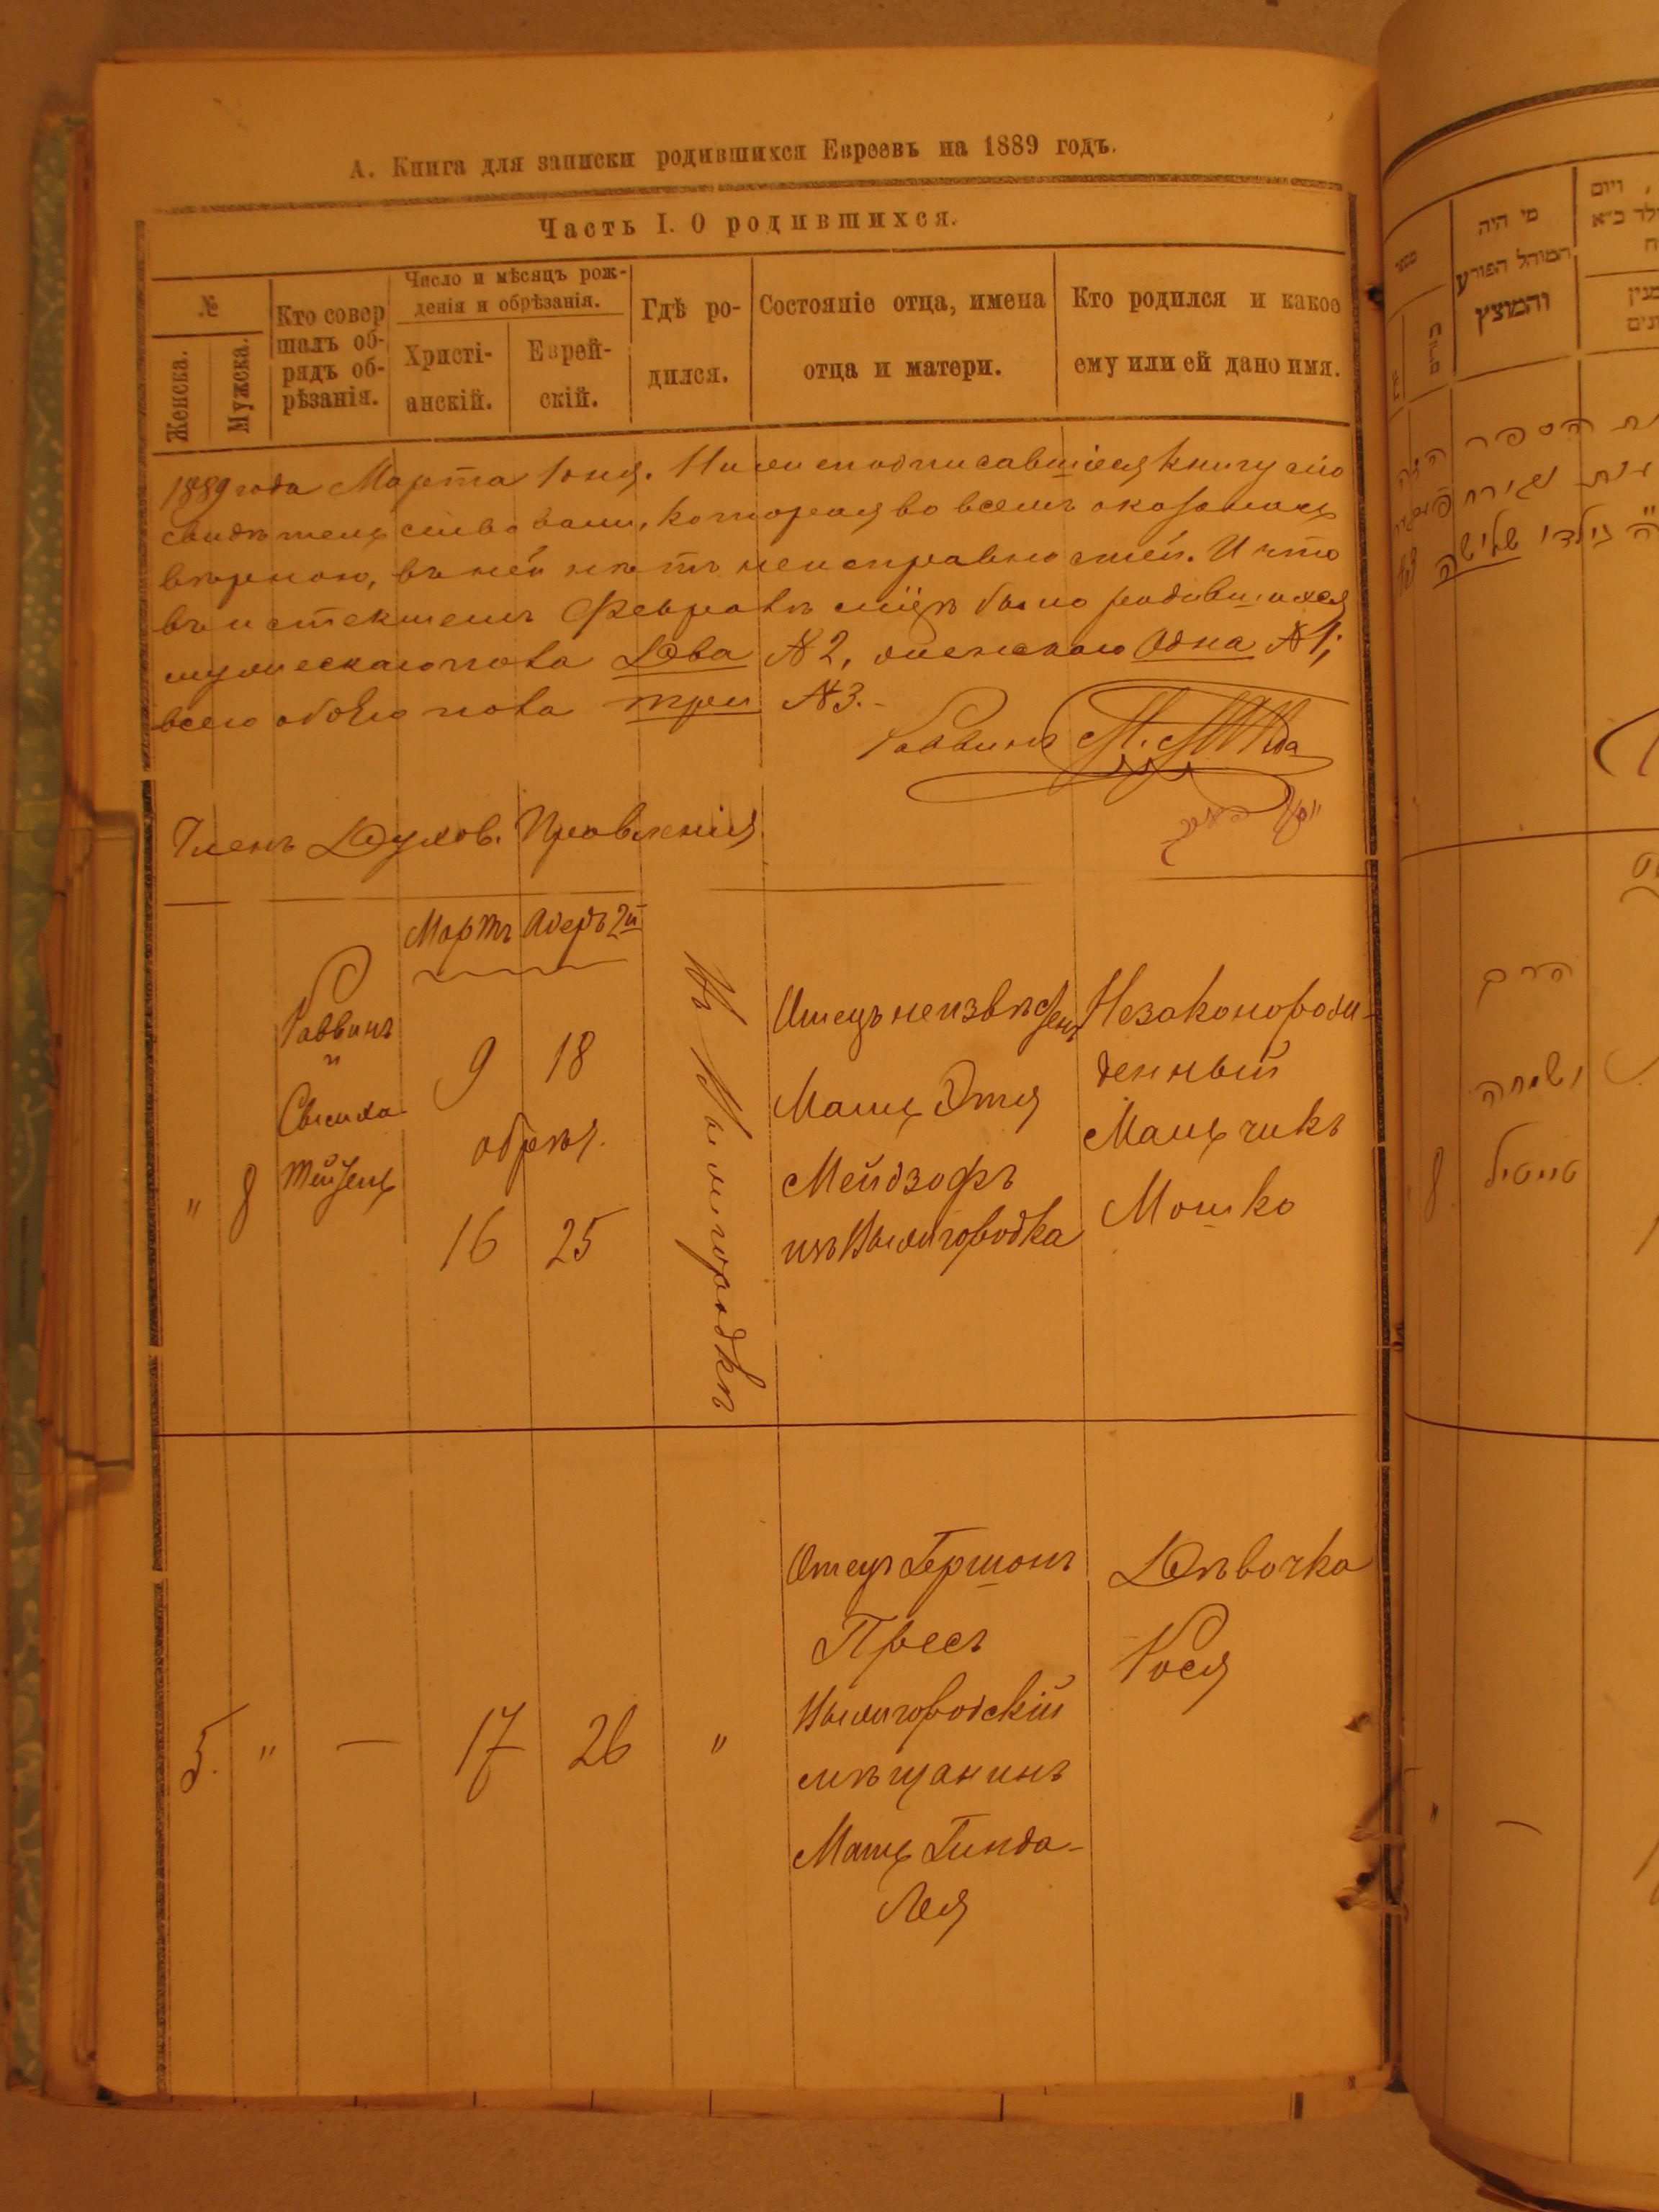 А. Книга для записки родившихся Евреевъ на 1889 годъ.
Часть I. О родившихся.
№
Женска.
Мужска.
Кто совер
шалъ об-
рядъ об-
рѣзанія.
Число и мѣсяцъ рож-
денія и обрѣзанія.
Христі-
анскій.
Еврей-
скій.
Гдѣ ро-
дился.
Состояніе отца, имена
отца и матери.
Кто родился и какое
ему или ей дано имя.
1889 года Марта 1 дня. Нижеподписавшіеся книгу сію
свидѣтельствовали, которая во всемъ оказалась
вѣрною, въ ней нѣтъ неисправностей. И что
въ истекшемъ Февралѣ м-цѣ было родившихся
мужескаго пола Два № 2, женскаго Одна № 1,
всего обоего пола три № 3.-
Раввинъ
Членъ Духов. Правленія
Мартъ Адеръ 2й
" 8
Раввинъ
и
Симха
Тейтель
9 18
обрѣз.
16 25
Въ Вышгородкѣ
Отецъ неизвѣстенъ
Мать Этя
Мейдзофъ
изъ Вышгородка
Незаконорож-
денный
Мальчикъ
Мошко
5. " — 17 26 "
Отецъ Гершонъ
Пресъ
Вышгородскій
мѣщанинъ
Мать Гинда-
Лея
Дѣвочка
Рося
מי היה
המוהל הפורע
והמוצץ
הרב
ושמחה
טייטיל
8